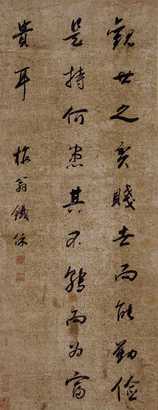 觀世之貧賤者而能勤儉
是持何患其不轉而為富
貴耳 梅翁鐵保